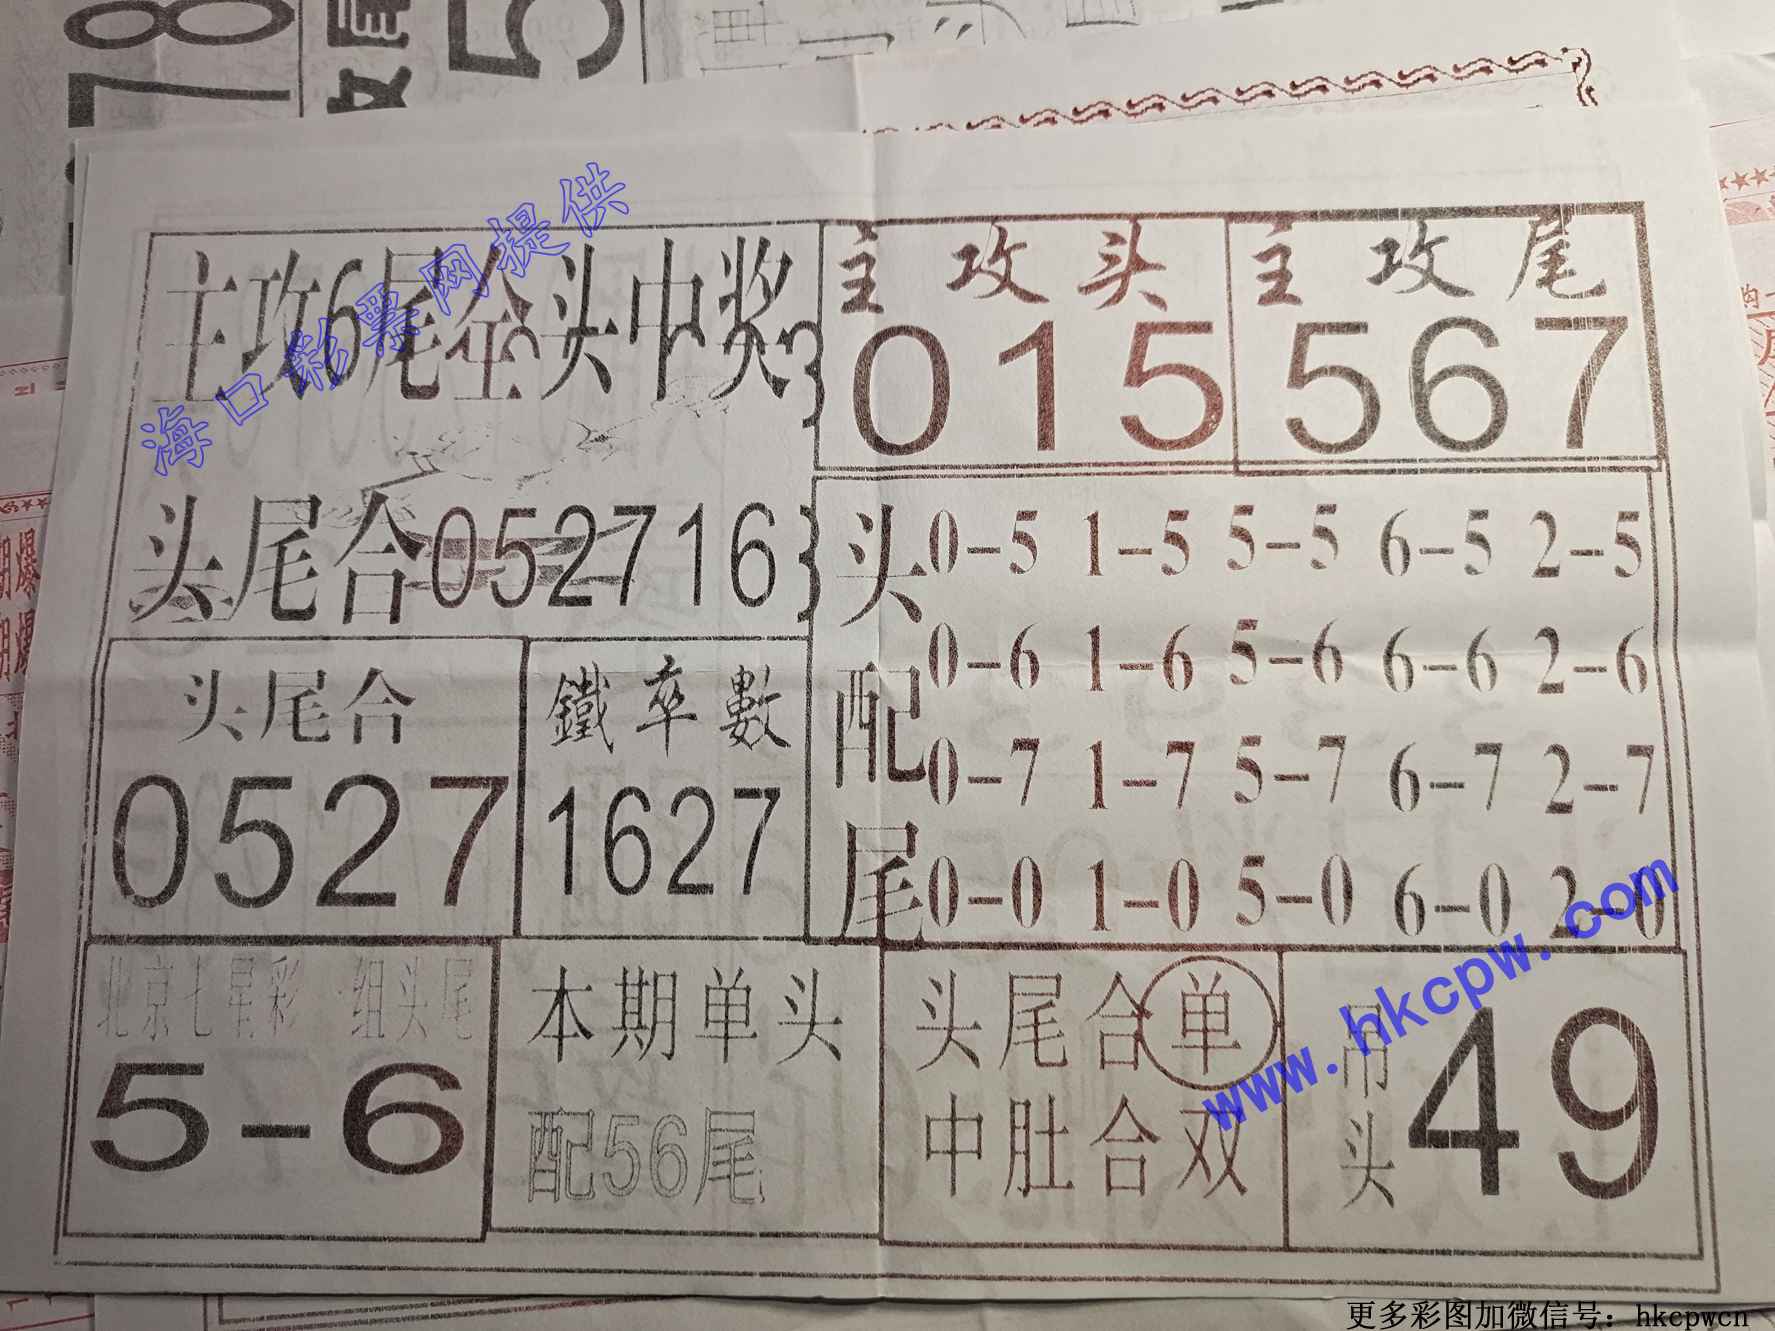 78
攻尾
5
主攻6尾全头中奖
海口彩票网提供
主攻头
015
主攻尾
567
头尾合052716
头配尾
0-5 1-5 5-5 6-5 2-5
0-6 1-6 5-6 6-6 2-6
0-7 1-7 5-7 6-7 2-7
0-0 1-0 5-0 6-0 2-0
头尾合
0527
鐵卒數
1627
北京七星彩 一组头尾
5-6
本期单头
配56尾
头尾合单
中肚合双
吊头
49
www.hkcpw.com
更多彩图加微信号：hkcpwcn